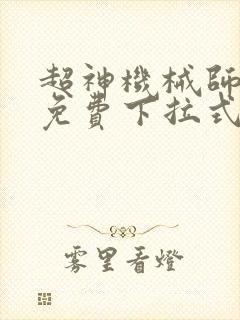 超神機械師
免費下拉式
雾里看燈